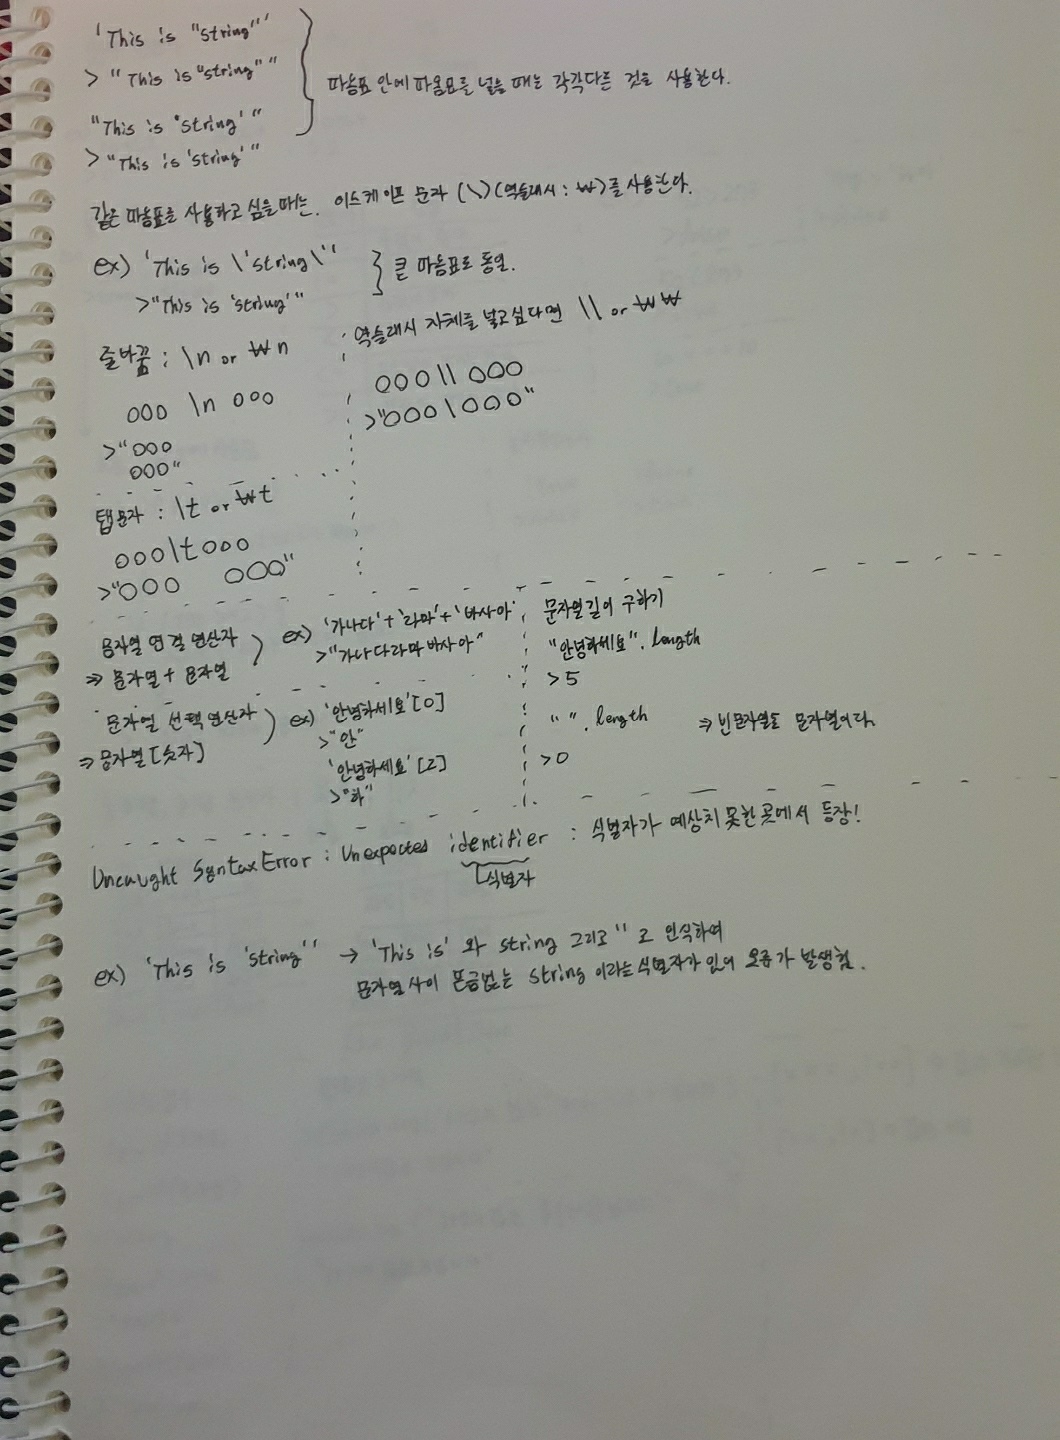 'This is "string"'
> "This is "string""
"This is 'string'"
> "This is 'string'"
따옴표 안에 따옴표를 넣을 때는 각각 다른 것을 사용한다.
같은 따옴표를 사용하고 싶을 때는, 이스케이프 문자 (\)(역슬래시 : ₩)를 사용한다.
ex) 'This is \'string\''
>"This is 'string'"
큰 따옴표로 통일.
줄바꿈 : \n or ₩n
ooo \n ooo
>"ooo
ooo"
역슬래시 자체를 넣고싶다면 \\ or ₩₩
ooo\\ ooo
>"ooo\ooo"
탭문자 : \t or ₩t
ooo\tooo
>"ooo ooo"
문자열 연결 연산자
⇒ 문자열 + 문자열
ex) '가나다'+'라마'+'바사아'
>"가나다라마바사아"
문자열 선택 연산자
⇒ 문자열[숫자]
ex) '안녕하세요'[0]
>"안"
'안녕하세요'[2]
>"하"
문자열길이 구하기
"안녕하세요".length
>5
"".length ⇒ 빈문자열도 문자열이다.
>0
Uncaught SyntaxError : Unexpected identifier : 식별자가 예상치 못한 곳에서 등장!
식별자
ex) 'This is 'string'' → 'This is' 와 string 그리고 '' 로 인식하여
문자열 사이 뜬금없는 string 이라는 식별자가 있어 오류가 발생함.